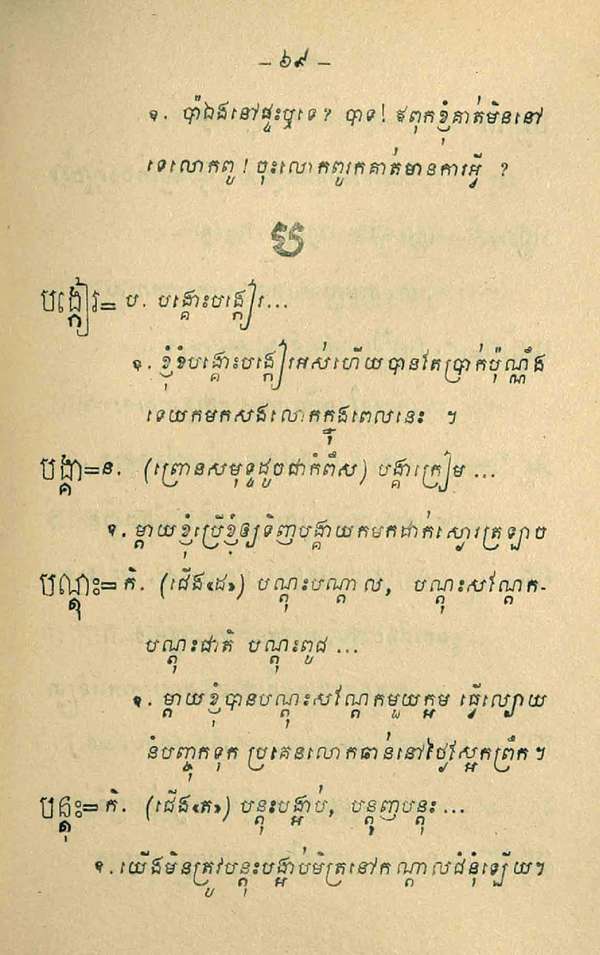 – ៦៩ –
ឧ. ប៉ាឯងនៅផ្ទះឬទេ? បាទ! ឪពុកខ្ញុំគាត់មិននៅ
ទេលោកពូ! ចុះលោកពូរកគាត់មានការអ្វី ?
ប
បង្កៀរ= ប. បង្គោះបង្កៀរ...
ឧ. ខ្ញុំខំបង្គោះបង្កៀរអស់ហើយបានតែប្រាក់ប៉ុណ្ណឹង
ទេយកមកសងលោកក្នុងពេលនេះ ។
បង្គា=ន. (ព្រោនសមុទ្ទដូចជាកំពឹស) បង្គាក្រៀម ...
ឧ. ម្ដាយខ្ញុំប្រើខ្ញុំឲ្យទិញបង្គាយកមកដាក់ស្ងោរត្រឡាច
បណ្ដុះ= កិ. (ជើង«ដ») បណ្ដុះបណ្ដាល, បណ្ដុះសណ្ដែក-
បណ្ដុះជាតិ បណ្ដុះពូជ ...
ឧ. ម្ដាយខ្ញុំបានបណ្ដុះសណ្ដែកមួយក្អម ធ្វើល្បោយ
នំបញ្ចុកទុក ប្រគេនលោកឆាន់នៅថ្ងៃស្អែកព្រឹក។
បន្តុះ= កិ. (ជើង«ត») បន្តុះបង្អាប់, បន្តុញបន្តុះ ...
ឧ. យើងមិនត្រូវបន្តុះបង្អាប់មិត្រនៅកណ្ដាលជំនុំឡើយ។